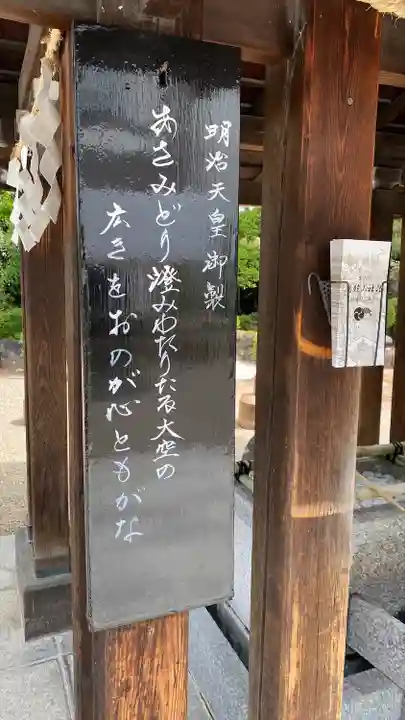 明治天皇御製
あさみどり澄みわたりたる大空の
広きをおのが心ともがな